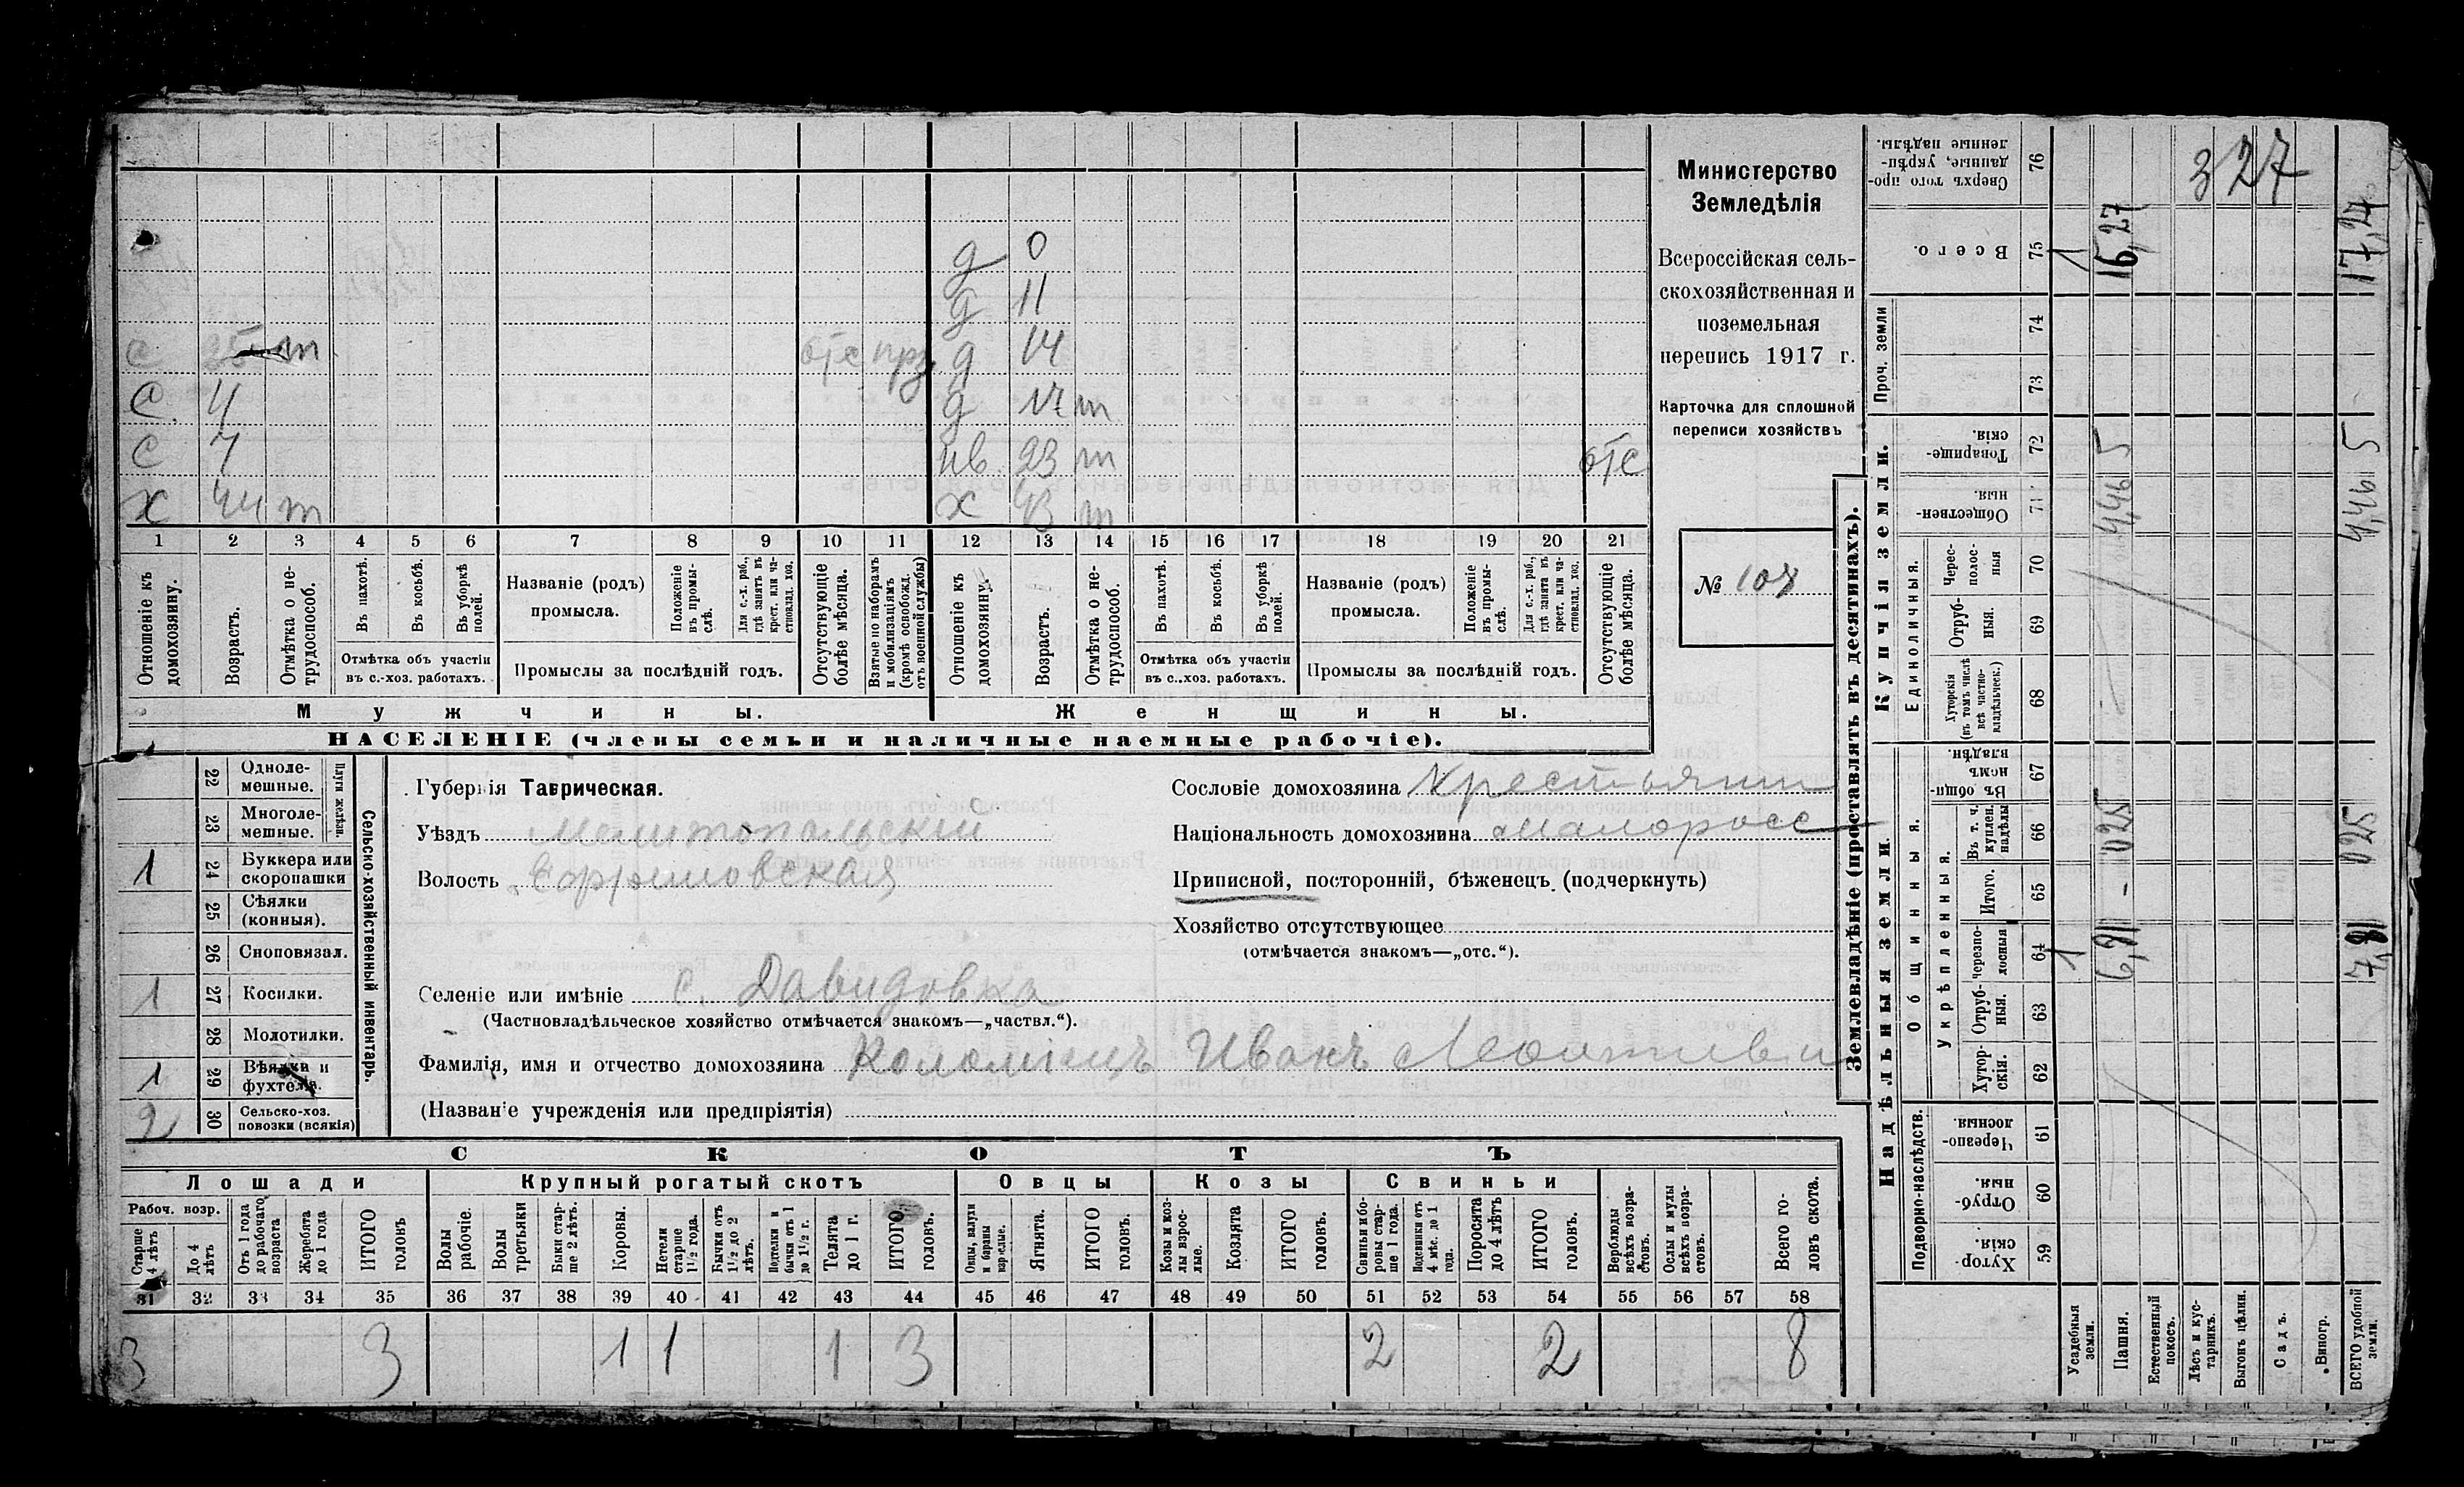 Министерство
Земледѣлія
Всероссійская сель-
скохозяйственная и
поземельная
перепись 1917 г.
Карточка для сплошной
переписи хозяйствъ
№ 108
д 0
д 11
с 25 т отс д 14
с. 4 д 17 т
с 7 нв. 23 т отс
х 44 т х 43 т
1 2 3 4 5 6 7 8 9 10 11 12 13 14 15 16 17 18 19 20 21
Отношеніе къ домохозяину.
Возрастъ.
Отмѣтка о не-трудоспособ.
Въ пахотѣ.
Въ косьбѣ.
Въ уборкѣ полей.
Отмѣтка объ участіи
въ с.-хоз. работахъ.
Названіе (родъ)
промысла.
Положеніе въ промы-слѣ.
Для с.-х. раб., гдѣ занятъ въ крест. или ча-стновлад. хоз.
Промыслы за послѣдній годъ.
Отсутствующіе болѣе мѣсяца.
Взятые по наборамъ и мобилизаціямъ (кромѣ освобожд. отъ военной службы)
Отношеніе къ домохозяину.
Возрастъ.
Отмѣтка о не-трудоспособ.
Въ пахотѣ.
Въ косьбѣ.
Въ уборкѣ полей.
Отмѣтка объ участіи
въ с.-хоз. работахъ.
Названіе (родъ)
промысла.
Положеніе въ промы-слѣ.
Для с.-х. раб., гдѣ занятъ въ крест. или ча-стновлад. хоз.
Промыслы за послѣдній годъ.
Отсутствующіе болѣе мѣсяца.
Мужчины. Женщины.
НАСЕЛЕНІЕ (члены семьи и наличные наемные рабочіе).
Сельско-хозяйственный инвентарь.
Плуги желѣзн.
22 Однолемешные.
23 Многолемешные.
1 24 Буккера или скоропашки
25 Сѣялки (конныя).
26 Сноповязал.
1 27 Косилки.
28 Молотилки.
1 29 Вѣялки и фухтеля.
2 30 Сельско-хоз. повозки (всякія)
Губернія Таврическая.
Уѣздъ Мелитопольскій
Волость Ефремовская
Сословіе домохозяина Крестьянин
Національность домохозяина малоросс
Приписной, посторонній, бѣженецъ. (подчеркнуть)
Хозяйство отсутствующее
(отмѣчается знакомъ—„отс.“).
Селеніе или имѣніе с. Давидовка
(Частновладѣльческое хозяйство отмѣчается знакомъ—„частвл.“).
Фамилія, имя и отчество домохозяина Коломіецъ Иванъ
(Названіе учрежденія или предпріятія)
СКОТЪ
Лошади Крупный рогатый скотъ Овцы Козы Свиньи
Рабоч. возр.
Старше 4 лѣтъ
До 4 лѣтъ
Отъ 1 года до рабочаго возраста
Жеребята до 1 года
ИТОГО головъ
Волы рабочіе.
Волы третьяки
Быки стар-ше 2 лѣтъ.
Коровы.
Нетели старше 1½ года.
Бычки отъ 1½ до 2 лѣтъ.
Подтелки и бычки отъ 1 до 1½ г.
Телята до 1 г.
ИТОГО головъ.
Овцы, валухи и бараны взрослые.
Ягнята.
ИТОГО головъ.
Козы и коз-лы взрос-лые.
Козлята
ИТОГО головъ.
Свиньи и бо-ровы стар-ше 1 года.
Подсвинки отъ 4 мѣс. до 1 года.
Поросята до 4 лѣтъ
ИТОГО головъ.
Верблюды всѣхъ возра-стовъ.
Ослы и мулы всѣхъ возра-стовъ.
Всего го-ловъ скота.
31 32 33 34 35 36 37 38 39 40 41 42 43 44 45 46 47 48 49 50 51 52 53 54 55 56 57 58
3 3 1 1 1 3 2 2 8
Землевладѣніе (проставлять въ десятинахъ).
Надѣльныя земли. Купчія земли.
Подворно-наслѣдств.
Общинныя.
Укрѣпленныя.
Единоличныя.
Проч. земли
Хуторскія. 59
Отрубныя. 60
Черезполосныя. 61
Хуторскія. 62
Отрубныя. 63
черезполосныя 64
Итого. 65
Въ т. ч. куплен. надѣлы 66
Въ общиномъ владѣн. 67
Хуторскія (въ томъ числѣ всѣ частно-владѣльческ.) 68
Отрубныя. 69
Чресполосныя 70
Общественныя. 71
Товарищескія. 72
73
74
Всего. 75
Сверхъ того проданные, укрѣпленные надѣлы. 76
Усадебныя земли. 1 1
Пашня. 6,81 - 025 4,46 5 16,27
Естественный покосъ.
Лѣсъ и кустарникъ.
Выгонъ цѣлин.
Садъ.
Виногр.
ВСЕГО удобной земли. 7,81 025 4,46 5 17,27
327